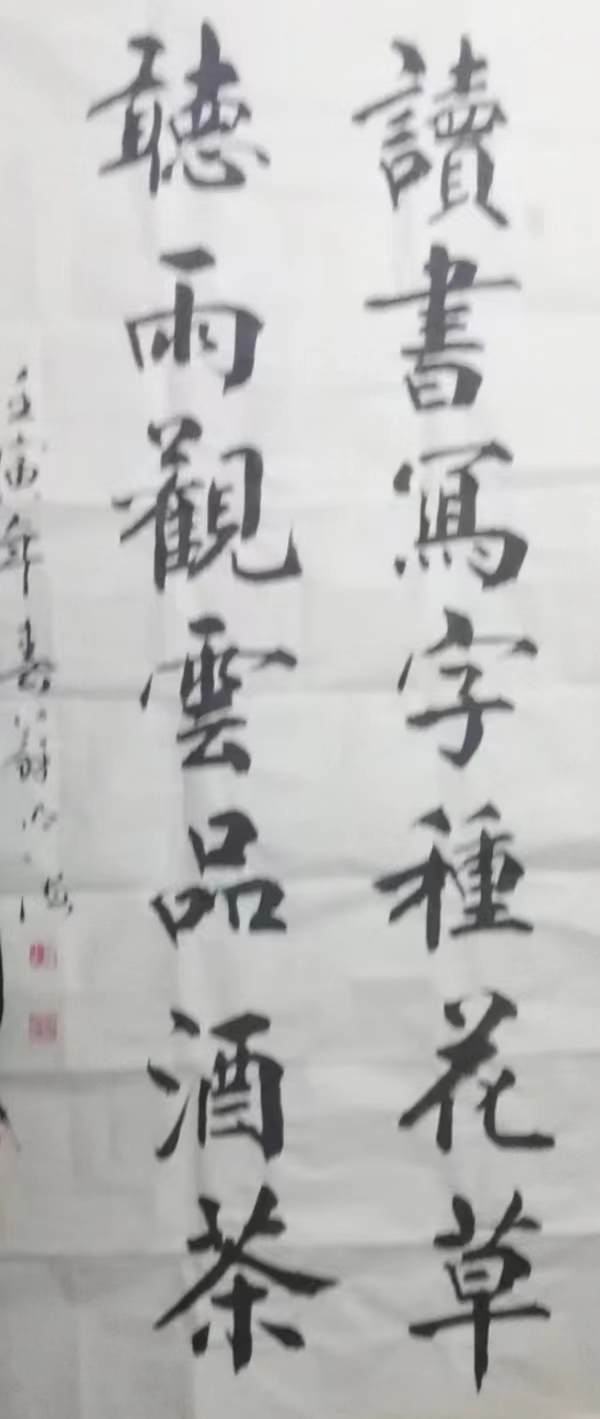 讀書寫字種花草
聽雨觀雲品酒茶
壬寅年春